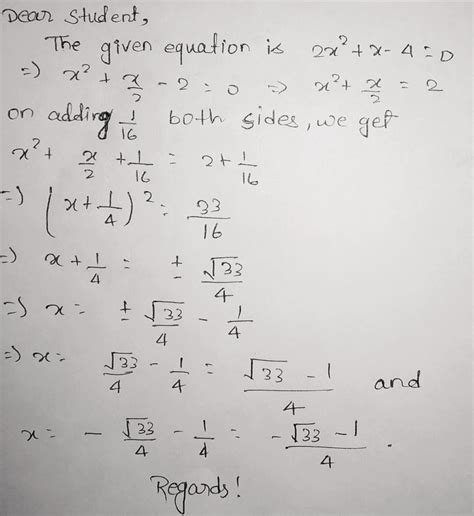 Dear Student,
The given equation is 2x² + x - 4 = 0
=) x² + x/2 - 2 = 0 => x² + x/2 = 2
on adding 1/16 both sides, we get
x² + x/2 + 1/16 = 2 + 1/16
=) (x + 1/4)² = 33/16
=) x + 1/4 = ± √33/4
=) x = ± √33/4 - 1/4
=) x = √33/4 - 1/4 = (√33 - 1)/4 and
x = - √33/4 - 1/4 = (-√33 - 1)/4 .
Regards!